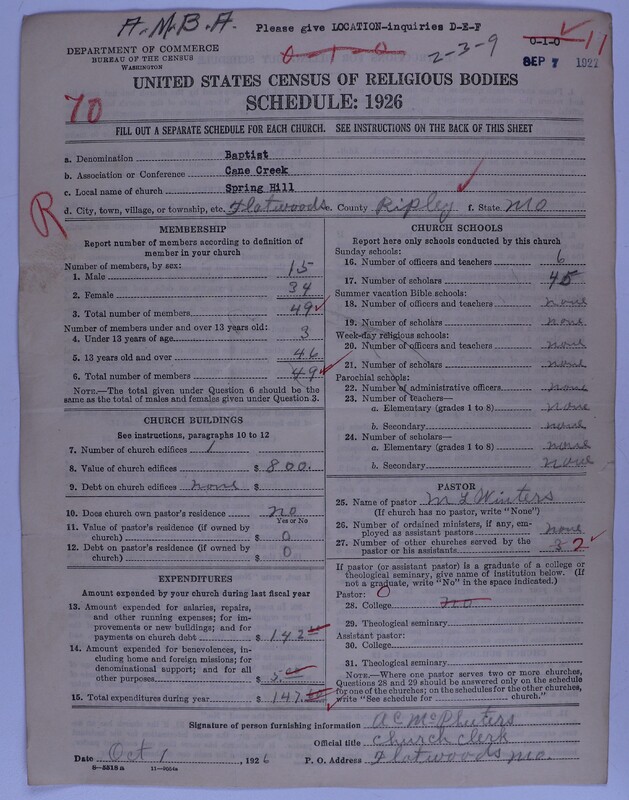 A.M.B.A.
Please give LOCATION—inquiries D-E-F
DEPARTMENT OF COMMERCE
BUREAU OF THE CENSUS
WASHINGTON
0-1-0
2-3-9
0-1-0 11
SEP 7 1927
UNITED STATES CENSUS OF RELIGIOUS BODIES
SCHEDULE: 1926
70
FILL OUT A SEPARATE SCHEDULE FOR EACH CHURCH. SEE INSTRUCTIONS ON THE BACK OF THIS SHEET
a. Denomination Baptist
b. Association or Conference Cane Creek
c. Local name of church Spring Hill
d. City, town, village, or township, etc. Flatwoods e. County Ripley f. State Mo
R
MEMBERSHIP
Report number of members according to definition of
member in your church
Number of members, by sex:
1. Male 15
2. Female 34
3. Total number of members 49
Number of members under and over 13 years old:
4. Under 13 years of age 3
5. 13 years old and over 46
6. Total number of members 49
NOTE.—The total given under Question 6 should be the
same as the total of males and females given under Question 3.
CHURCH BUILDINGS
See instructions, paragraphs 10 to 12
7. Number of church edifices 1
8. Value of church edifices $ 800.
9. Debt on church edifices none $
10. Does church own pastor's residence? no
Yes or No
11. Value of pastor's residence (if owned by
church) $ 0
12. Debt on pastor's residence (if owned by
church) $ 0
EXPENDITURES
Amount expended by your church during last fiscal year
13. Amount expended for salaries, repairs,
and other running expenses; for im-
provements or new buildings; and for
payments on church debt $ 142.00
14. Amount expended for benevolences,
including home and foreign missions; for
denominational support; and for all
other purposes $ 5.00
15. Total expenditures during year $ 147.00
CHURCH SCHOOLS
Report here only schools conducted by this church
Sunday schools:
16. Number of officers and teachers 6
17. Number of scholars 45
Summer vacation Bible schools:
18. Number of officers and teachers none
19. Number of scholars none
Week-day religious schools:
20. Number of officers and teachers none
21. Number of scholars none
Parochial schools:
22. Number of administrative officers none
23. Number of teachers—
a. Elementary (grades 1 to 8) none
b. Secondary none
24. Number of scholars—
a. Elementary (grades 1 to 8) none
b. Secondary none
PASTOR
25. Name of pastor M L Winters
(If church has no pastor, write "None")
26. Number of ordained ministers, if any, em-
ployed as assistant pastors none
27. Number of other churches served by the
pastor or his assistants 3 2
If pastor (or assistant pastor) is a graduate of a college or
theological seminary, give name of institution below. (If
not a graduate, write "No" in the space indicated.)
Pastor:
28. College no
29. Theological seminary
Assistant pastor:
30. College
31. Theological seminary
NOTE.—Where one pastor serves two or more churches,
Questions 28 and 29 should be answered only on the schedule
for one of the churches; on the schedules for the other churches,
write "See schedule for church."
Signature of person furnishing information A C McPheters
Official title Church Clerk
Date Oct 1, 1926 P. O. Address Flatwoods Mo.